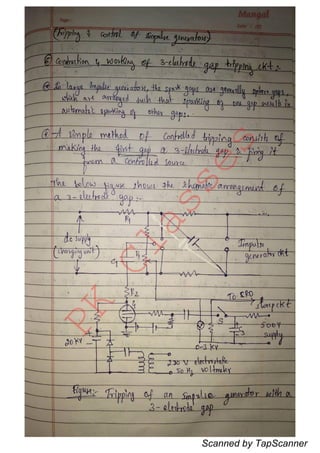 Page:-
Mangal
(Tripping & Control of Impulse generators)
Contruction & working of 3-electrode gap tripping ckt:-
In large Impulse generators, the spark gaps are generally sphere gaps,
which are arranged such that sparking of one gap result in
automatic sparking of other gaps.
A simple method of Controlled tripping consists of
making the first gap a 3-Electrode gap & firing it
from a controlled source.
The below figure shows the schematic arrangement of
a 3-electrode gap:-
R1
dc supply
(charging unit)
C1
R1
Impulse
generator ckt
R2
To CRO
Lamp ckt
S
C3
500V
supply
20 KV
0-3 kV
230 V electrostatic
50 Hz voltmeter
Figure:- Tripping of an Impulse generator with a
3-electrode gap
PK Classes
Scanned by TapScanner